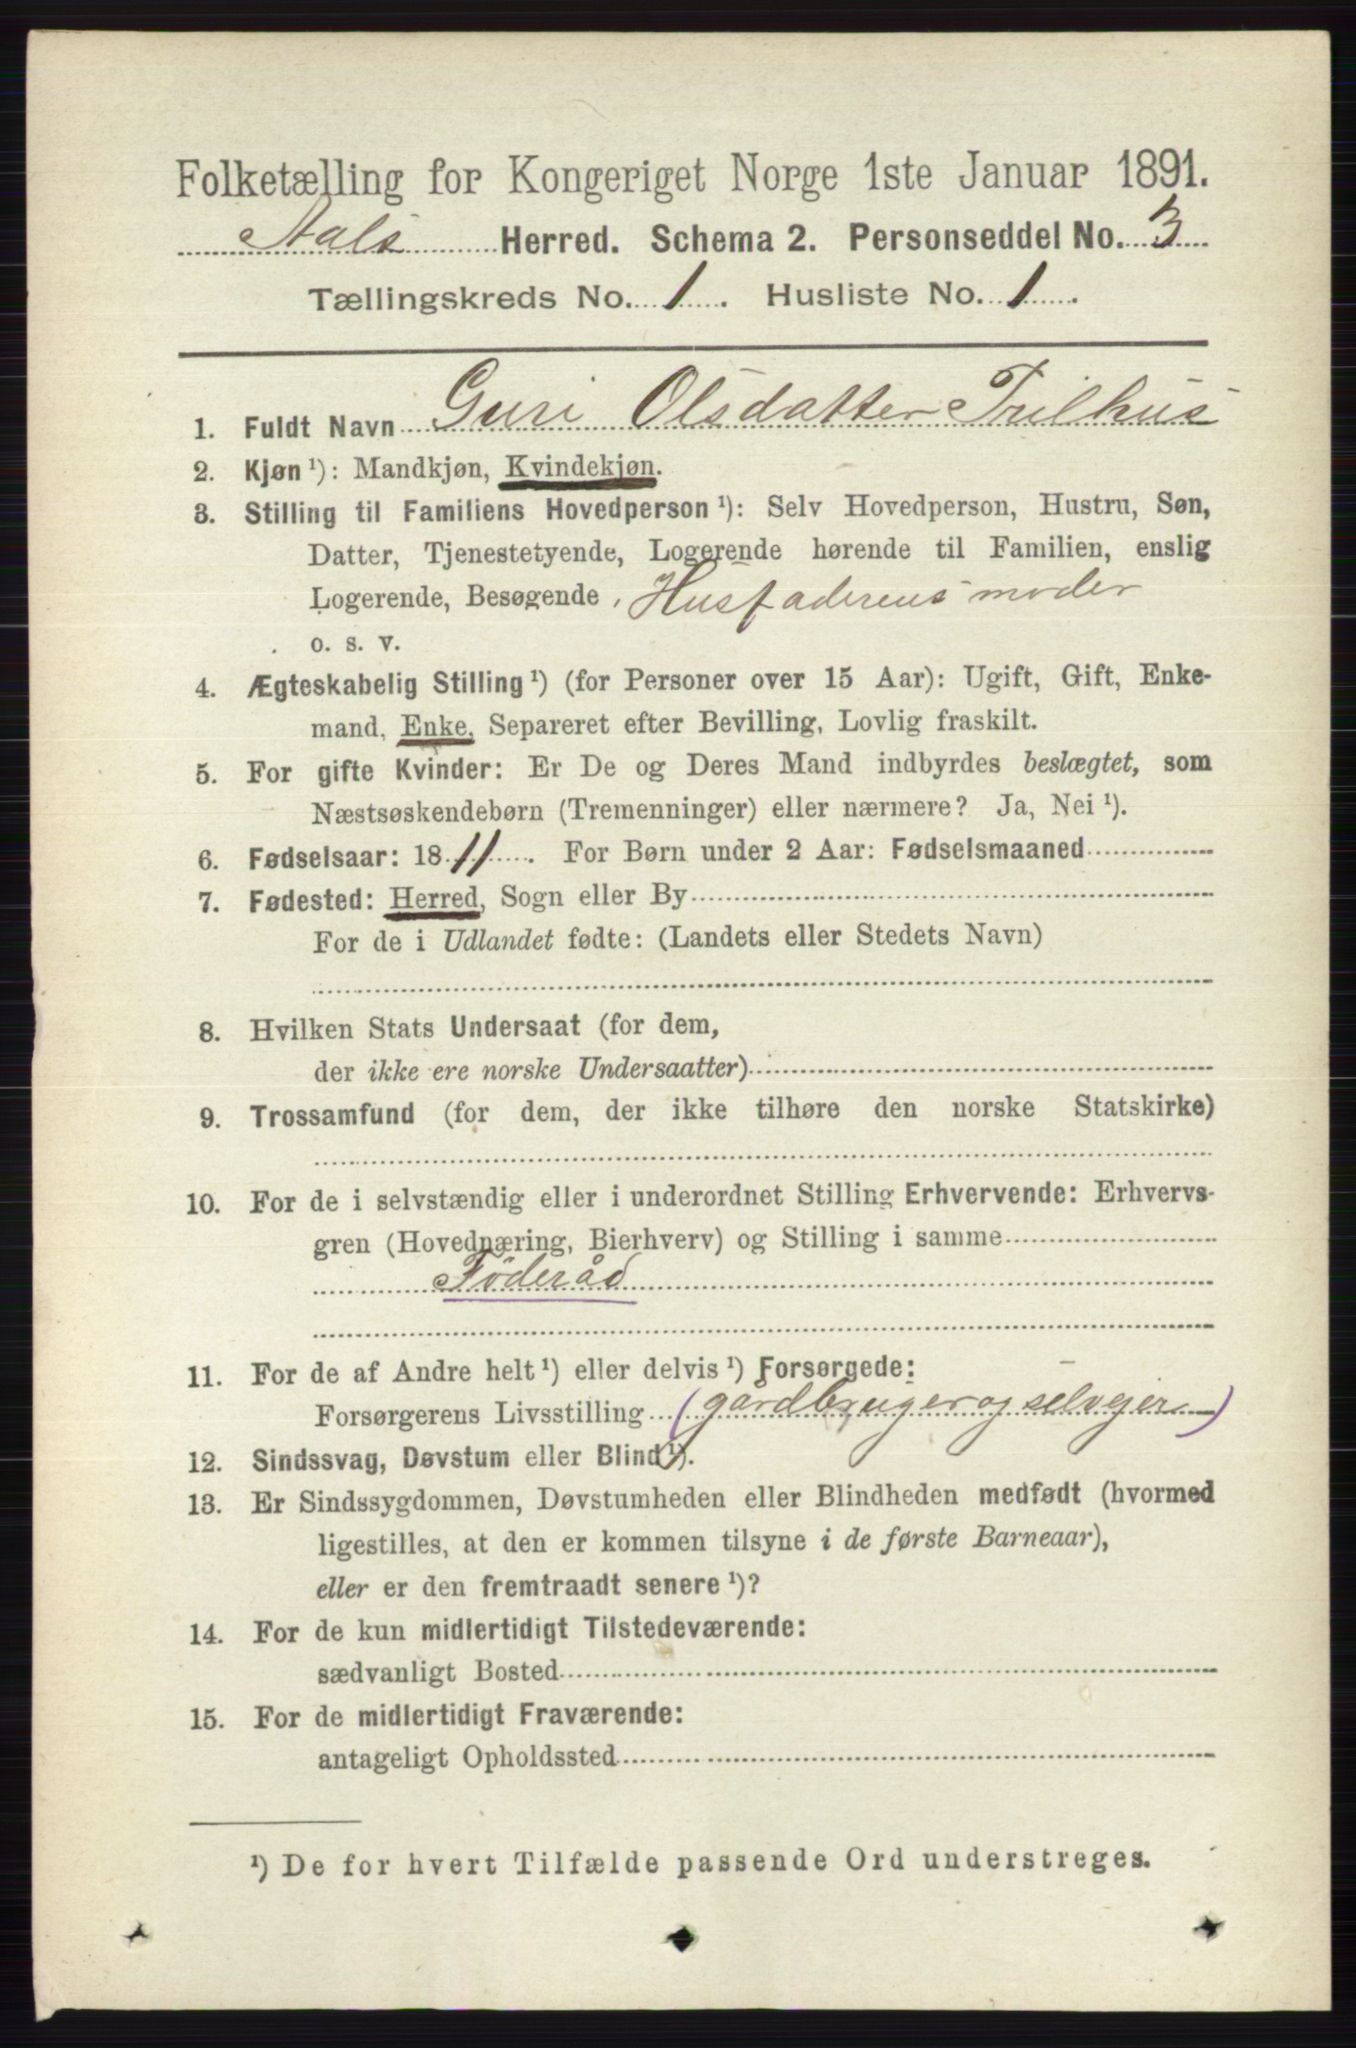 Folketælling for Kongeriget Norge 1ste Januar 1891.
Aals Herred. Schema 2. Personseddel No. 3
Tællingskreds No. 1. Husliste No. 1.
1. Fuldt Navn Guri Olsdatter Trilhus
2. Kjøn ¹): Mandkjøn, Kvindekjøn.
3. Stilling til Familiens Hovedperson ¹): Selv Hovedperson, Hustru, Søn,
Datter, Tjenestetyende, Logerende hørende til Familien, enslig
Logerende, Besøgende, Husfaderens moder
o. s. v.
4. Ægteskabelig Stilling ¹) (for Personer over 15 Aar): Ugift, Gift, Enke-
mand, Enke, Separeret efter Bevilling, Lovlig fraskilt.
5. For gifte Kvinder: Er De og Deres Mand indbyrdes beslægtet, som
Næstsøskendebørn (Tremenninger) eller nærmere? Ja, Nei ¹).
6. Fødselsaar: 1811. For Børn under 2 Aar: Fødselsmaaned
7. Fødested: Herred, Sogn eller By
For de i Udlandet fødte: (Landets eller Stedets Navn)
8. Hvilken Stats Undersaat (for dem,
der ikke ere norske Undersaatter)
9. Trossamfund (for dem, der ikke tilhøre den norske Statskirke)
10. For de i selvstændig eller i underordnet Stilling Erhvervende: Erhvervs-
gren (Hovednæring, Bierhverv) og Stilling i samme
Föderåd
11. For de af Andre helt ¹) eller delvis ¹) Forsørgede:
Forsørgerens Livsstilling (gårdbruger og selvejer)
12. Sindssvag, Døvstum eller Blind ¹).
13. Er Sindssygdommen, Døvstumheden eller Blindheden medfødt (hvormed
ligestilles, at den er kommen tilsyne i de første Barneaar),
eller er den fremtraadt senere ¹)?
14. For de kun midlertidigt Tilstedeværende:
sædvanligt Bosted
15. For de midlertidigt Fraværende:
antageligt Opholdssted
¹) De for hvert Tilfælde passende Ord understreges.